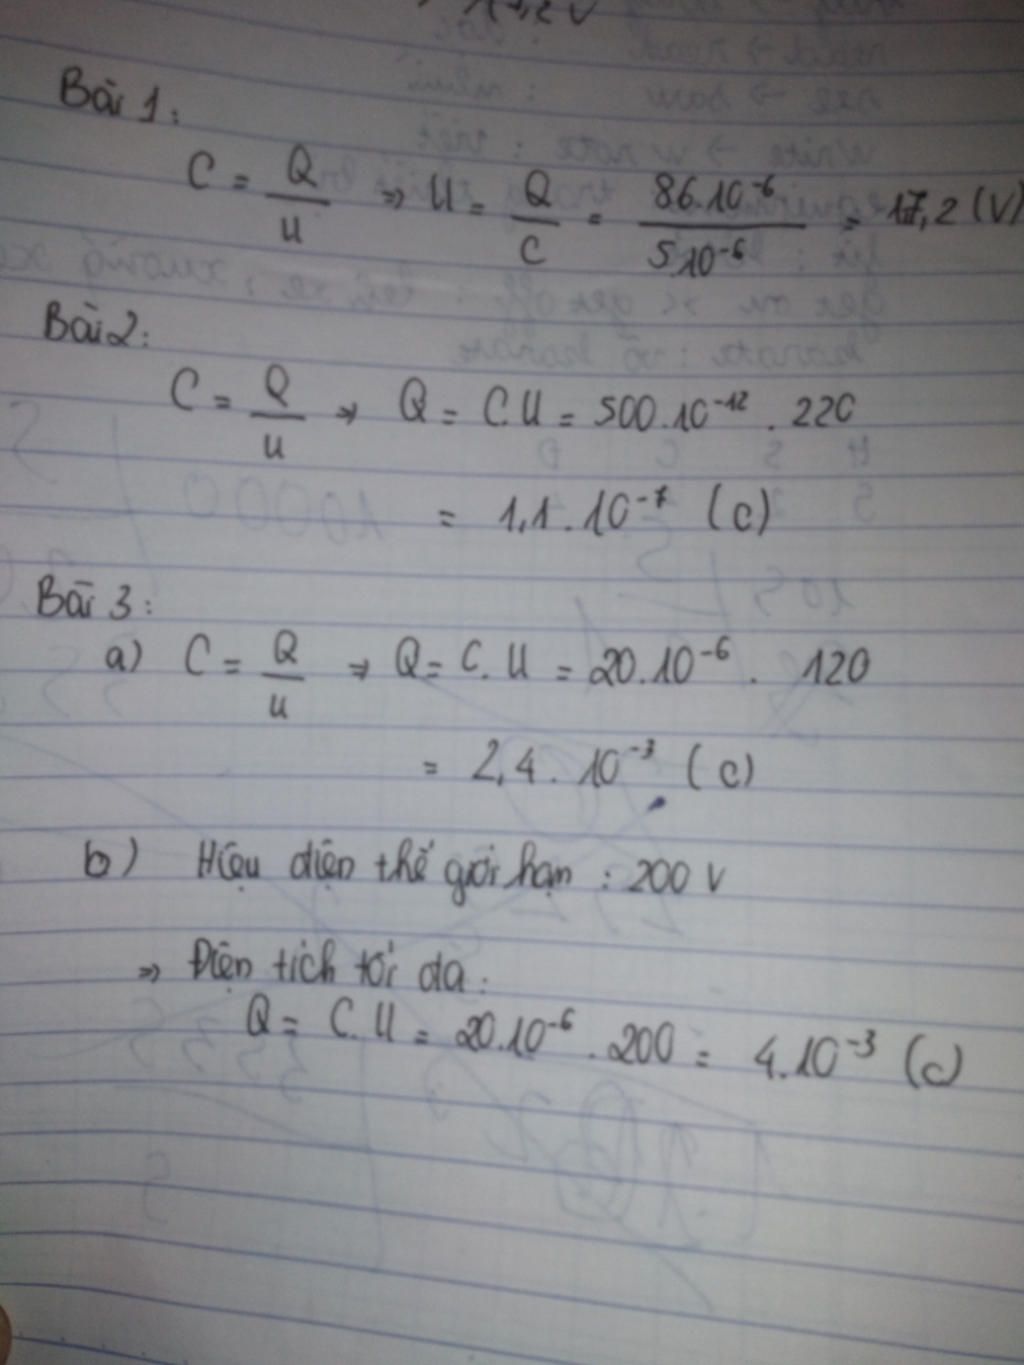 17,2 V
Bài 1:
C = Q/U => U = Q/C = 86.10⁻⁶/5.10⁻⁶ = 17,2 (V)
Bài 2:
C = Q/U => Q = C.U = 500.10⁻¹² . 220
= 1,1.10⁻⁷ (C)
Bài 3:
a) C = Q/U => Q = C.U = 20.10⁻⁶ . 120
= 2,4.10⁻³ (C)
b) Hiệu điện thế giới hạn : 200 V
=> Điện tích tối đa:
Q = C.U = 20.10⁻⁶ . 200 = 4.10⁻³ (C)